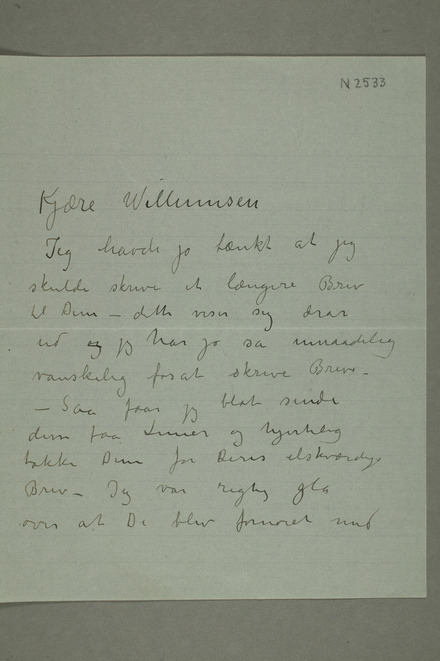 N 2533
Kjære Willumsen
Jeg havde jo tænkt at jeg
skulde skrive et længere Brev
til Dem – dette viser sig
ud og jeg har jo så umaadelig
vanskelig for at skrive Breve –
– Saa faar jeg blot sende
disse faa Linier og hjertelig
takke Dem for Deres elskværdige
Brev – Jeg var rigtig gla
over at De blev fornøiet med